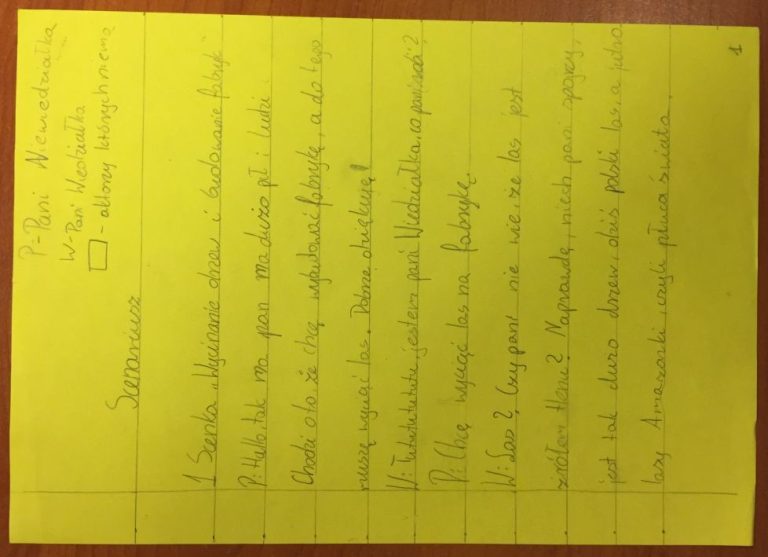 P-Pani Niewiedziałka
W-Pani Wiedziałka
- aktorzy których niema
Scenariusz
1 Scenka "Wycinanie drzew i budowanie fabryk"
P: Hallo, tak ma pan ma dużo pił i ludzi.
Chodzi oto że chcę wybudować fabrykę, a do tego
muszę wyciąć las. Dobrze dziękuję!
W: Tutututututu, jestem pani Wiedziałka, co pani robi?
P: Chcę wyciąć las na fabrykę.
W: Las?, Czy pani nie wie, że las jest
źrółem tlenu? Naprawdę, niech pani spojrzy,
jest tak dużo drzew, dziś polski las, a jutro
lasy Amazonki, czyli płuca świata.
1